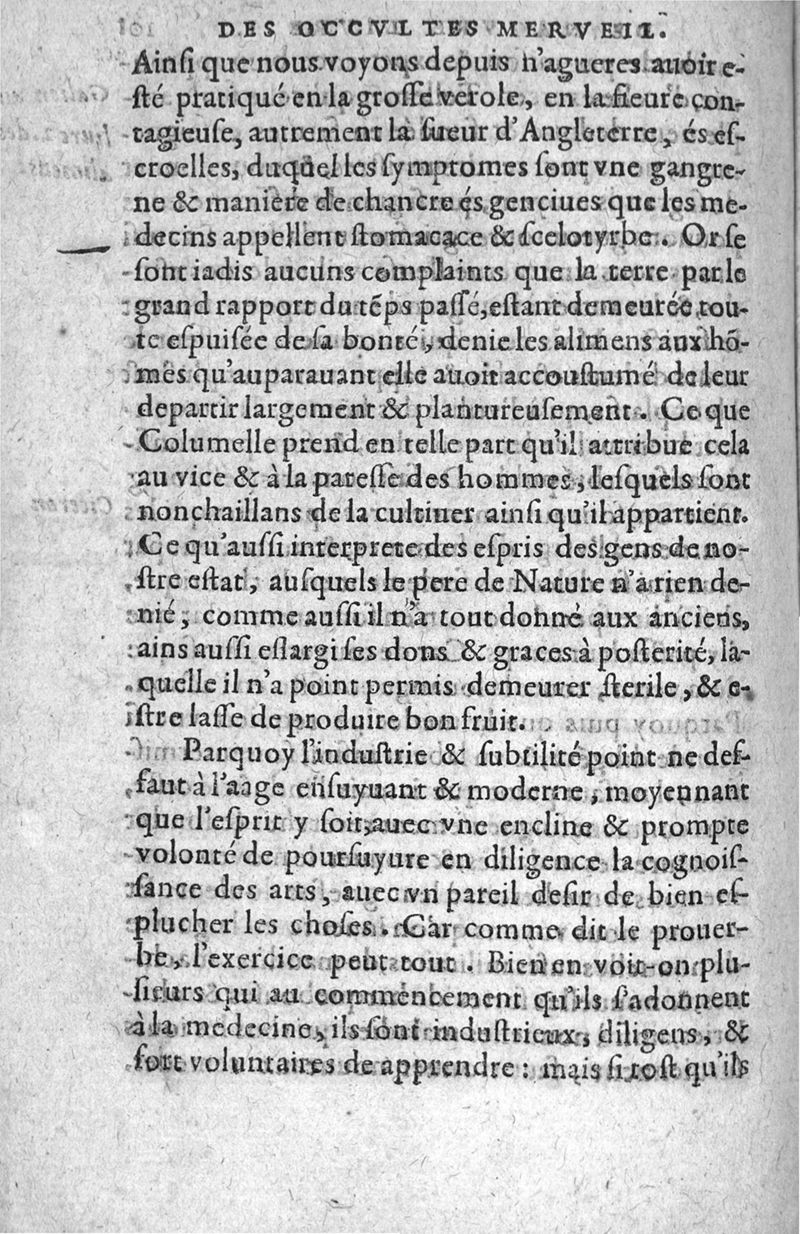 DES OCCVLTES MERVEIL.
Ainſi que nous voyons depuis n'agueres auoir e-
ſté pratiqué en la groſſe verole, en la fieure con-
tagieuſe, autrement la ſueur d'Angleterre, és eſ-
croelles, duquel les ſymptomes ſont vne gangre-
ne & maniere de chancre és genciues que les me-
decins appellent ſtomacace & ſcelotyrbe. Or ſe
ſont iadis aucuns complaints que la terre par le
grand rapport du tẽps paſſé, eſtant demeurée tou-
te eſpuiſée de ſa bonté, denie les alimens aux hõ-
mes qu'auparauant elle auoit accouſtumé de leur
departir largement & plantureuſement. Ce que
Columelle prend en telle part qu'il attribue cela
au vice & à la pareſſe des hommes, leſquels ſont
nonchaillans de la cultiuer ainſi qu'il appartient.
Ce qu'auſſi interprete des eſpris des gens de no-
ſtre eſtat, auſquels le pere de Nature n'a rien de-
nié, comme auſſi il n'a tout donné aux anciens,
ains auſſi eſlargi ſes dons & graces à poſterité, la-
quelle il n'a point permis demeurer ſterile, & e-
ſtre laſſe de produire bon fruit.
Parquoy l'induſtrie & ſubtilité point ne deſ-
faut à l'aage enſuyuant & moderne, moyennant
que l'eſprit y ſoit, auec vne encline & prompte
volonté de pourſuyure en diligence la cognoiſ-
ſance des arts, auec vn pareil deſir de bien eſ-
plucher les choſes. Car comme dit le prouer-
be, l'exercice peut tout. Bien en voit-on plu-
ſieurs qui au commencement qu'ils ſ'adonnent
à la medecine, ils ſont induſtrieux, diligens, &
fort voluntaires de apprendre : mais ſi toſt qu'ils